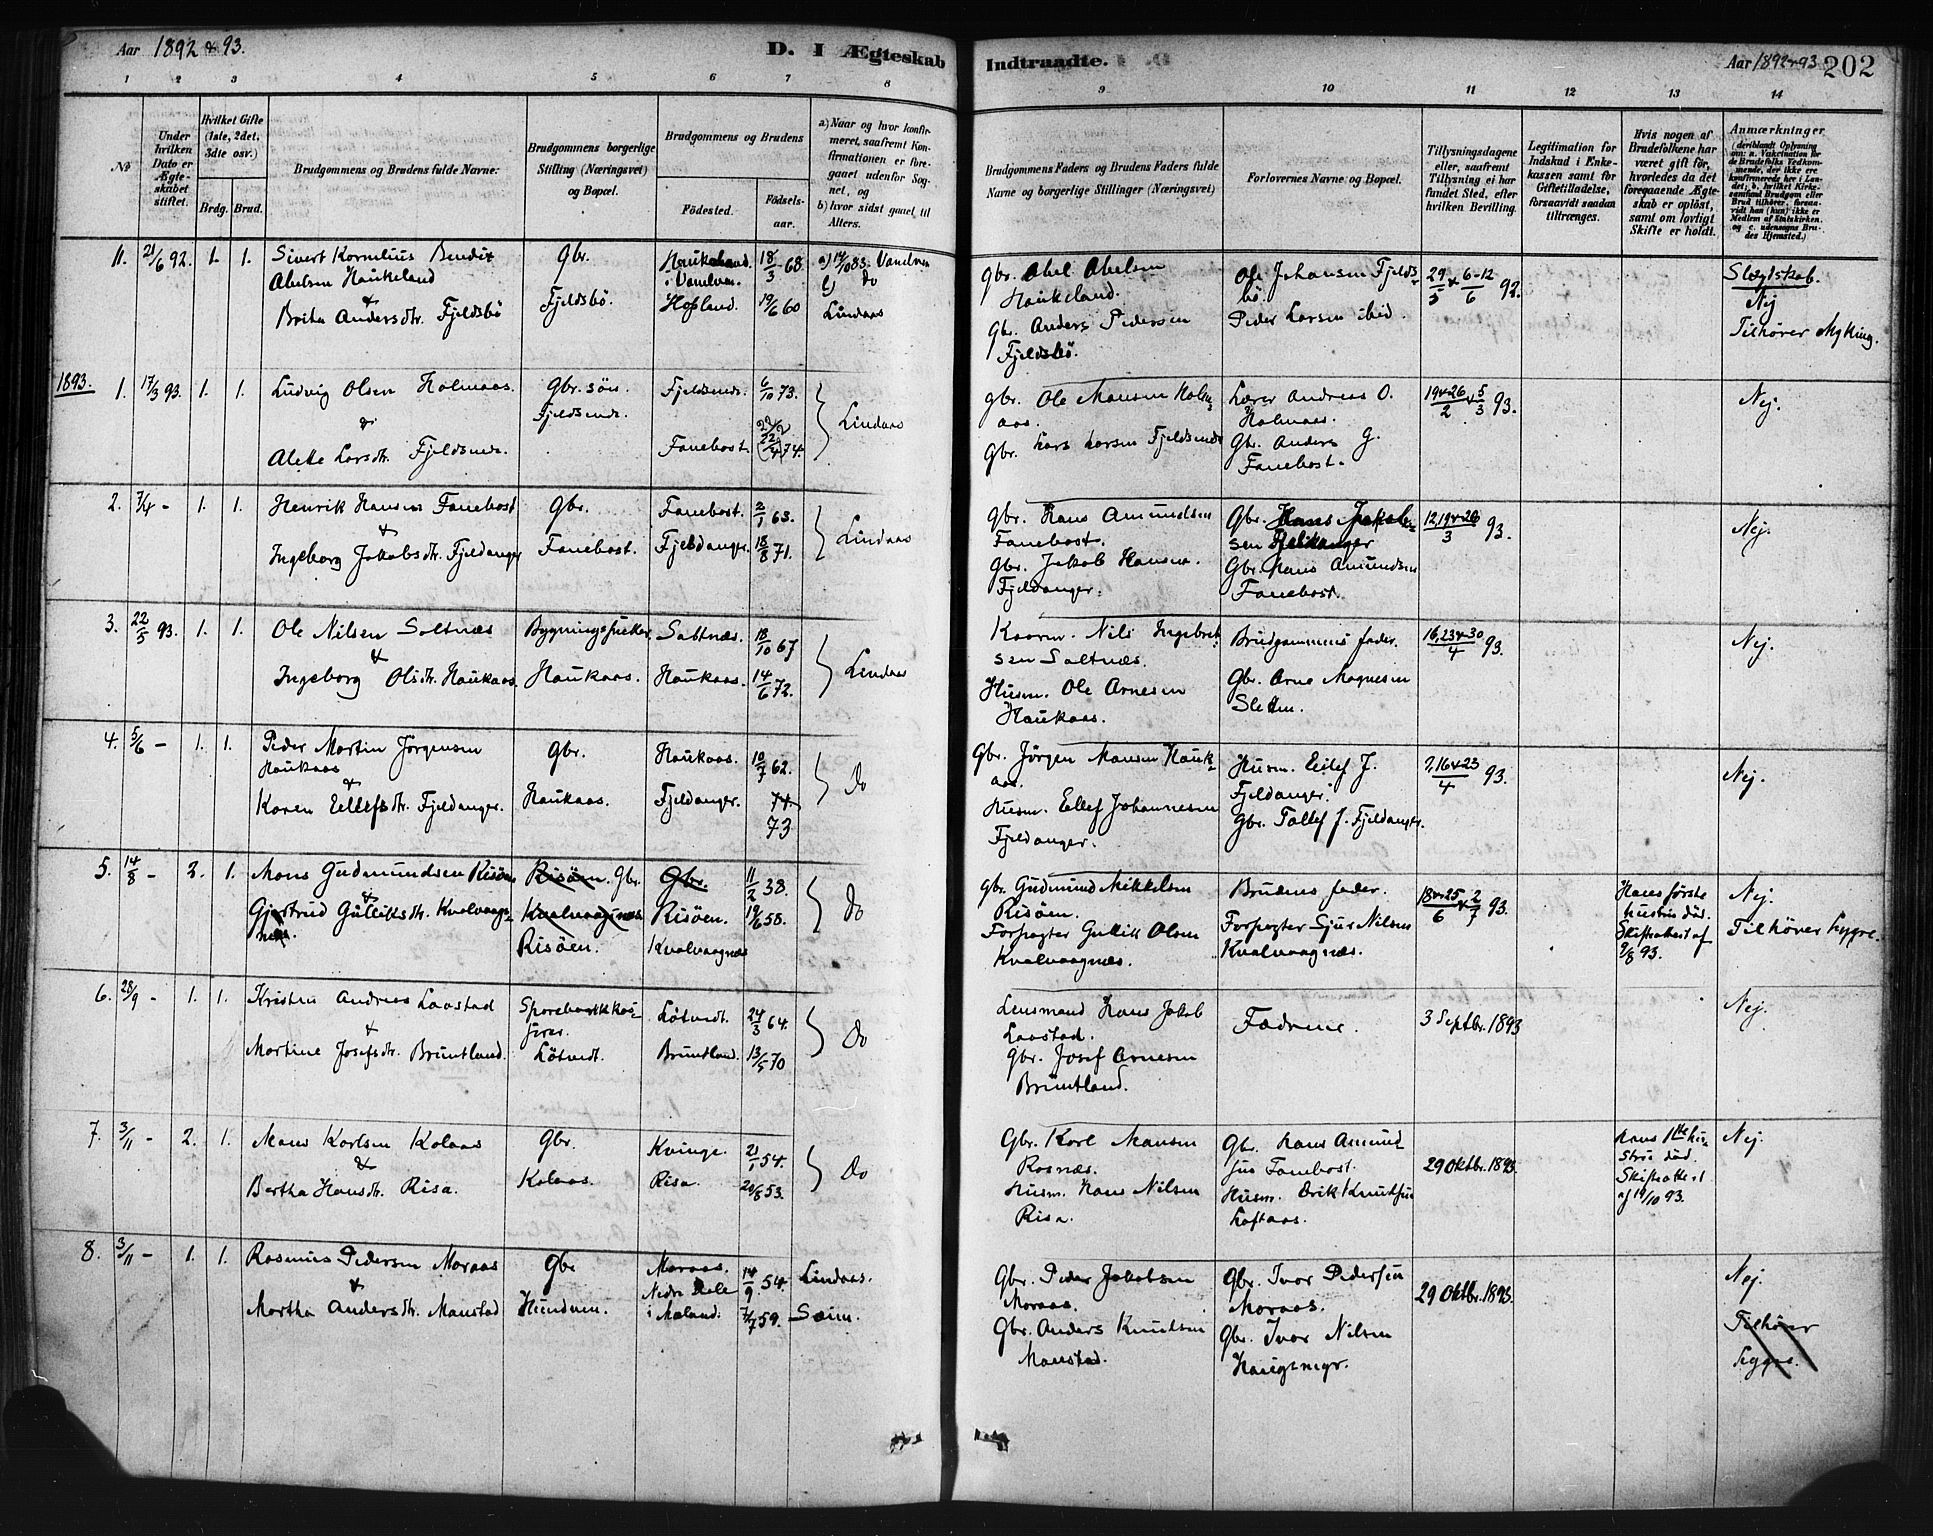 Aar 1892 & 93.
D. I Ægteskab
Indtraadte.
Aar 1892 & 93
202
1 2 3 4 5 6 7 8 9 10 11 12 13 14
№
Under hvilken Dato er Ægteskabet stiftet.
Hvilket Gifte (1ste, 2det, 3die osv.)
Brdg. Brud.
Brudgommens og Brudens fulde Navne.
Brudgommens borgerlige Stilling (Næringsvei) og Bopæl.
Brudgommens og Brudens
Fødested. Fødselsaar.
a) Naar og hvor konfirmeret, saafremt Konfirmationen er foregaaet udenfor Sognet, og
b) hvor sidst gaaet til Alters.
Brudgommens Faders og Brudens Faders fulde Navne og borgerlige Stillinger (Næringsvei)
Forlovernes Navne og Bopæl.
Tillysningsdagene eller, saafremt Tillysning ei har fundet Sted, efter hvilken Bevilling.
Legitimation for Indskud i Enkekassen samt for Giftetilladelse, forsaavidt saadan tiltrænges.
Hvis nogen af Brudefolkene har været gift før, hvorledes da det foregaaende Ægteskab er opløst, samt om lovligt Skifte er holdt.
Anmærkninger
(deriblandt Oplysning om: a. Vakcination for de Brudefolks Vedkommende, der ikke ere konfirmerede her i Landet; b. hvilket Kirkesamfund Brudgom eller Brud tilhører, forsaavidt han (hun) ikke er Medlem af Statskirken, og c. udensogns Brudes Hjemsted.)
11. 21/6 92. 1. 1. Sivert Kornelius Bendix
Abelsen Haukeland
&
Brita Andersdtr. Fjeldsbö
Gbr.
Fjeldsbö.
Haukeland
i Vanelven.
Hopland.
18/3 68.
19/6 60
a) 14/10 83. Vanelven
b) do
Lindaas
Gbr. Abel Abelsen
Haukeland.
Gbr. Anders Pedersen
Fjeldsbö.
Ole Johansen Fjelds
bö.
Peder Larsen ibid.
29/5 & 6-12/6 92.
Slægtskab.
Nej
Tilhører Myking.
1893.
1. 17/3 93. 1. 1. Ludvig Olsen Holmaas.
&
Alette Larsdtr. Fjeldsende.
Gbr. sön
Fjeldsende.
Fjeldsende.
Fanebost.
6/10 73.
22/2 (22/4) 74.
Lindaas
Gbr. Ole Mansen Holm
aas.
Gbr. Lars Larsen Fjeldsende
Lærer Andreas O.
Holmaas.
Gbr. Anders G.
Fanebost.
19 & 26/2 & 5/3 93.
Nej.
2. 7/4 - 1. 1. Henrik Hansen Fanebost
&
Ingeborg Jakobsdtr. Fjeldanger
Gbr.
Fanebost.
Fanebost.
Fjeldanger.
2/1 63.
18/8 71.
Lindaas
Gbr. Hans Amundsen
Fanebost.
Gbr. Jakob Hansen
Fjeldanger.
Gbr. Hans Jakob
sen Fjeldanger
Gbr. Hans Amundsen
Fanebost.
12, 19 & 26/3 93.
Nej.
3. 22/5 93. 1. 1. Ole Nilsen Saltnæs
&
Ingeborg Olsdtr. Haukaas.
Haukaas.
Saltnæs.
Haukaas.
18/10 67
14/6 72.
Lindaas
Kaarm. Nils Ingebret
sen Saltnæs.
Husm. Ole Arnesen
Haukaas.
Brudgommens fader.
Gbr. Arne Magnesen
Sletten.
16, 23 & 30/4 93.
Nej.
4. 5/6 - 1. 1. Peder Martin Jörgensen
Haukaas
&
Karen Ellefsdtr. Fjeldanger.
Gbr.
Haukaas.
Haukaas.
Fjeldanger.
10/7 62.
74
73
Do
Gbr. Jörgen Mansen Hauk
aas.
Husm. Ellef Johannesen
Fjeldanger.
Husm. Eilef J.
Fjeldanger.
Gbr. Tollef J. Fjeldanger.
9, 16 & 23/4 93.
Nej.
5. 14/8 - 2. 1. Mons Gudmundsen Risöen
&
Gjertrud Gulliksdtr. Kvalvaags
næs.
Risöen. Gbr.
Kvalvaagnæs
Risöen.
Gbr.
Risöen.
Kvalvaagnæs
11/2 38.
19/6 58.
Do
Gbr. Gudmund Mikkelsen
Risöen.
Forpagter Gullik Olsen
Kvalvaagnæs.
Brudens fader.
Forpagter Sjur Nilsen
Kvalvaagnæs.
18 & 25/6 & 2/7 93.
Hans første
hustru död.
Skifteattest af
9/8 93.
Nej.
Tilhører Lygre.
6. 28/9 - 1. 1. Kristen Andreas Laastad
&
Martine Josefsdtr. Bruntland.
Lötvedt.
Lötvedt.
Bruntland.
24/3 64.
13/5 70
Do
Lensmand Hans Jakob
Laastad.
Gbr. Josef Arnesen
Bruntland.
Fædrene.
3 Septbr. 1893
Nej.
7. 3/11 - 2. 1. Mans Karlsen Kolaas
&
Bertha Hansdtr. Risa.
Gbr.
Kolaas.
Kvinge.
Risa.
21/1 54.
20/8 53.
Do
Gbr. Karl Mansen
Rosnæs.
Husm. Hans Nilsen
Risa.
Gbr. Hans Amund
sen Fanebost.
Husm. Erik Knutsen
Loftaas.
29 Oktbr. 1893.
Hans 1ste hu
stru död.
Skifteattest
af 19/10 93.
Nej.
8. 3/11 - 1. 1. Rasmus Pedersen Moraas
&
Martha Andersdtr. Manstad
Gbr
Hundven.
Moraas.
Nedre Dale
i Mæland.
14/9 54.
7/7 59.
Lindaas.
Sæim.
Gbr. Peder Jakobsen
Moraas.
Gbr. Anders Knutsen
Manstad.
Gbr. Ivar Pedersen
Moraas.
Gbr. Ivar Nilsen
29 Oktbr. 1893.
Nej.
Tilhører
Lygre.